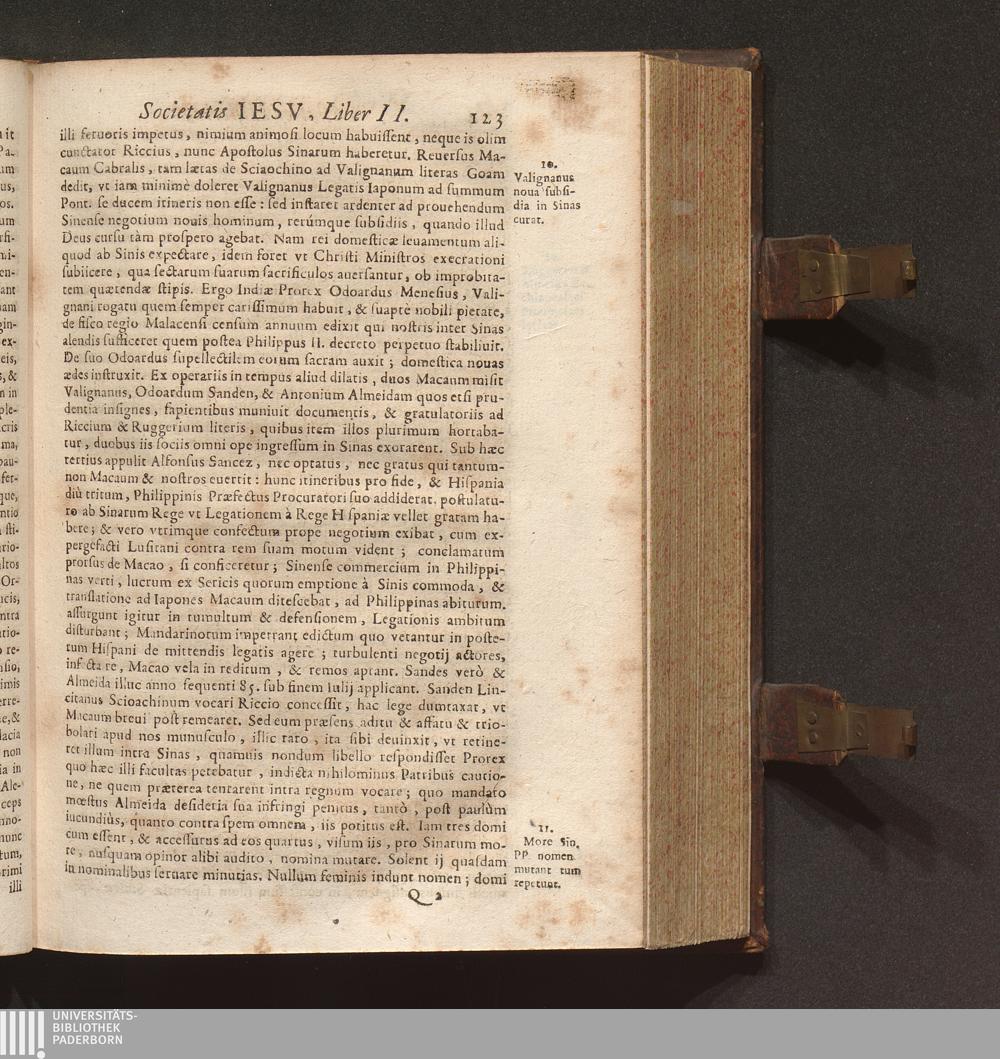 Societatis IESV, Liber II. 123
illi feruoris impetus, nimium animosi locum habuissent, neque is olim
cunctator Riccius, nunc Apostolus Sinarum haberetur. Reuersus Ma-
caum Cabralis, tam lætas de Sciaochino ad Valignanum literas Goam
dedit, vt iam minimè doleret Valignanus Legatis Iaponum ad summum
Pont. se ducem itineris non esse: sed instaret ardenter ad prouehendum
Sinense negotium nouis hominum, rerúmque subsidiis, quando illud
Deus cursu tàm prospero agebat. Nam rei domesticæ leuamentum ali-
quod ab Sinis expectare, idem foret vt Christi Ministros execrationi
subiicere, qua sectarum suarum sacrificulos auersantur, ob improbita-
tem quærendæ stipis. Ergo Indiæ Prorex Odoardus Menesius, Vali-
gnani rogatu quem semper carissimum habuit, & suaptè nobili pietate,
de fisco regio Malacensi censum annuum edixit qui nostris inter Sinas
alendis sufficeret quem postea Philippus II. decreto perpetuo stabiliuit.
De suo Odoardus supellectilem eorum sacram auxit; domestica nouas
ædes instruxit. Ex operariis in tempus aliud dilatis, duos Macaum misit
Valignanus, Odoardum Sanden, & Antonium Almeidam quos etsi pru-
dentia insignes, sapientibus muniuit documentis, & gratulatoriis ad
Riccium & Ruggerium literis, quibus item illos plurimum hortaba-
tur, duobus iis sociis omni ope ingressum in Sinas exorarent. Sub hæc
tertius appulit Alfonsus Sancez, nec optatus, nec gratus qui tantum-
non Macaum & nostros euertit: hunc itineribus pro fide, & Hispania
diù tritum, Philippinis Præfectus Procuratori suo addiderat, postulatu-
ro ab Sinarum Rege vt Legationem à Rege Hispaniæ vellet gratam ha-
bere; & vero vtrimque confectum prope negotium exibat, cum ex-
pergefacti Lusitani contra rem suam motum vident; conclamatum
prorsus de Macao, si conficeretur; Sinense commercium in Philippi-
nas verti, lucrum ex Sericis quorum emptione à Sinis commoda, &
translatione ad Iapones Macaum ditescebat, ad Philippinas abiturum.
assurgunt igitur in tumultum & defensionem, Legationis ambitum
disturbant; Mandarinorum impetrant edictum quo vetantur in poste-
rum Hispani de mittendis legatis agere; turbulenti negotij actores,
infecta re, Macao vela in reditum, & remos aptant. Sandes verò &
Almeida illuc anno sequenti 85. sub finem Iulij applicant. Sanden Lin-
citanus Scioachinum vocari Riccio concessit, hac lege dumtaxat, vt
Macaum breui post remearet. Sed eum præsens aditu & affatu & trio-
bolari apud nos munusculo, istic raro, ita sibi deuinxit, vt retine-
ret illum intra Sinas, quamuis nondum libello respondisset Prorex
quo hæc illi facultas petebatur, indicta nihilominus Patribus cautio-
ne, ne quem præterea tentarent intra regnum vocare; quo mandato
mœstus Almeida desideria sua infringi penitus, tantò, post paulùm
iucundiùs, quanto contra spem omnem, iis potitus est. Iam tres domi
cum essent, & accessurus ad eos quartus, visum iis, pro Sinarum mo-
re, nusquam opinor alibi audito, nomina mutare. Solent ij quasdam
in nominalibus seruare minutias. Nullum feminis indunt nomen; domi
Q 2
10.
Valignanus
noua subsi-
dia in Sinas
curat.
11.
More Sin.
PP. nomen
mutant tum
repetunt.
illi
UNIVERSITÄTS-
BIBLIOTHEK
PADERBORN